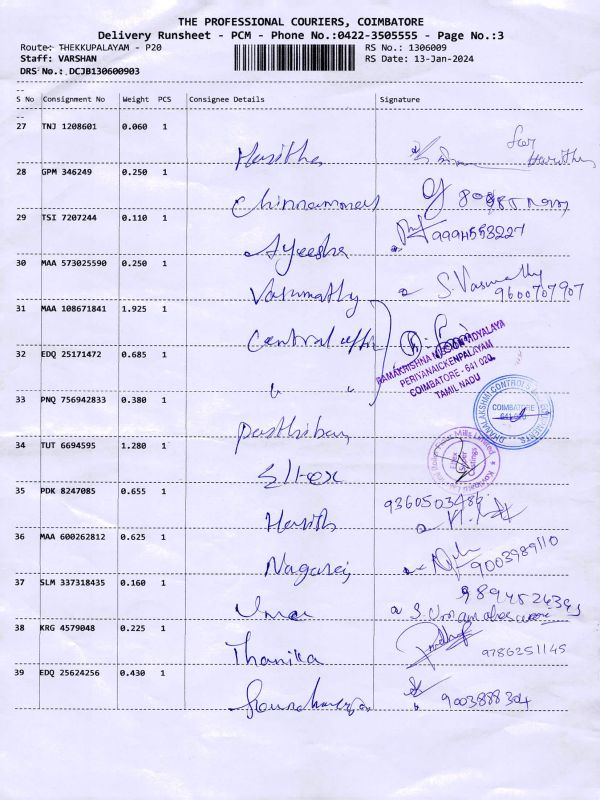 THE PROFESSIONAL COURIERS, COIMBATORE
Delivery Runsheet - PCM - Phone No.:0422-3505555 - Page No.:3
Route: THEKKUPALAYAM - P20 RS No.: 1306009
Staff: VARSHAN RS Date: 13-Jan-2024
DRS No.: DCJB130600903
--
S No Consignment No Weight PCS Consignee Details Signature
--
27 TNJ 1208601 0.060 1
Haritha for Haritha
28 GPM 346249 0.250 1
Chinnammal
29 TSI 7207244 0.110 1
Ayeesha 9994553227
30 MAA 573025590 0.250 1
Vasumathy S. Vasumathy
9600707907
31 MAA 108671841 1.925 1
Central
RAMAKRISHNA MISSION VIDYALAYA
PERIYANAICKENPALAYAM
COIMBATORE - 641 020.
TAMIL NADU
32 EDQ 25171472 0.685 1
" "
33 PNQ 756942833 0.380 1
Parthiban
COIMBATORE
34 TUT 6694595 1.280 1
Eltex
Mills Limited
35 PDK 8247085 0.655 1
Harish
36 MAA 600262812 0.625 1
Nagaraj 9003989110
37 SLM 337318435 0.160 1
Umar
38 KRG 4579048 0.225 1
Thanika 9786251145
39 EDQ 25624256 0.430 1
9003888304